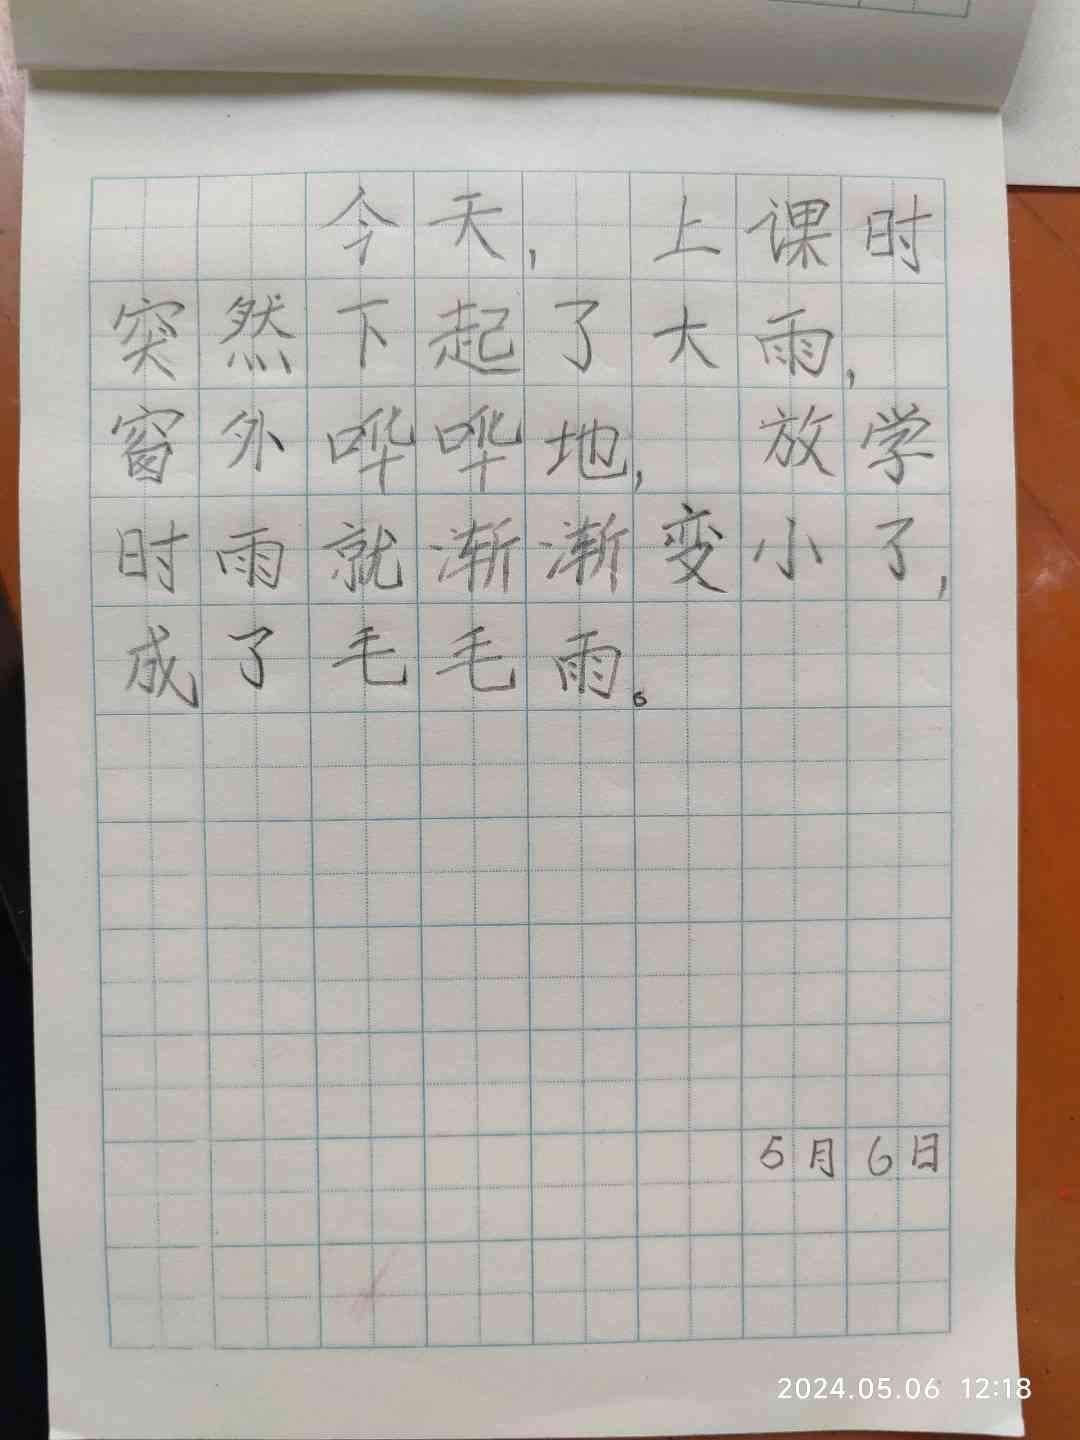 今天，上课时
突然下起了大雨，
窗外哗哗地，放学
时雨就渐渐变小了，
成了毛毛雨。
5月6日
2024.05.06 12:18